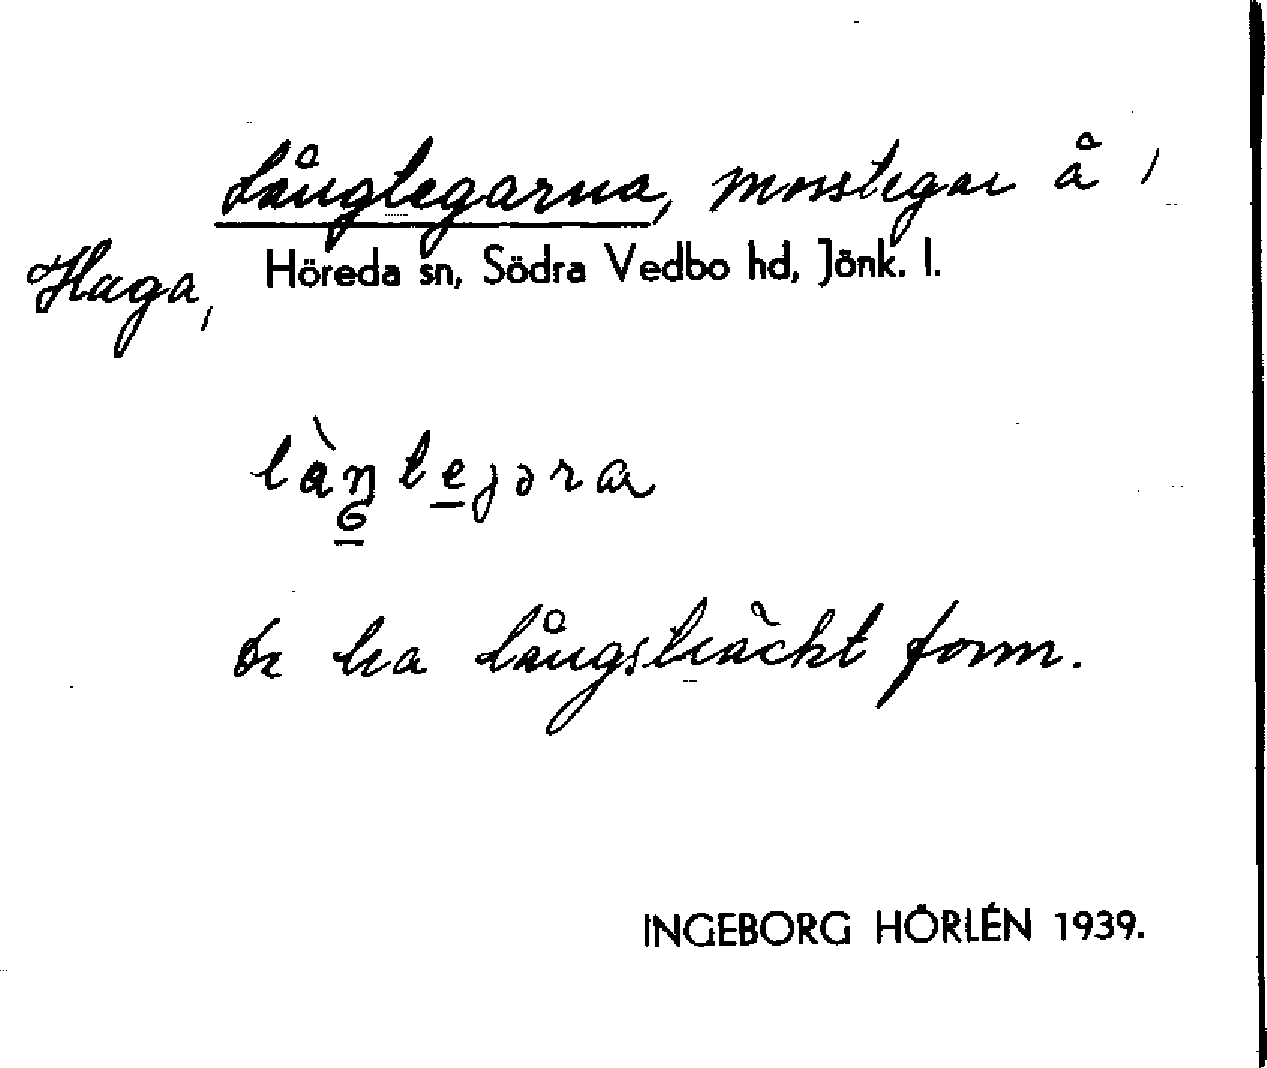 Långtegarna, mosstegar å 1
Haga, Höreda sn, Södra Vedbo hd, Jönk. l.
làŋtejəra
De ha långsträckt form.
INGEBORG HÖRLÉN 1939.